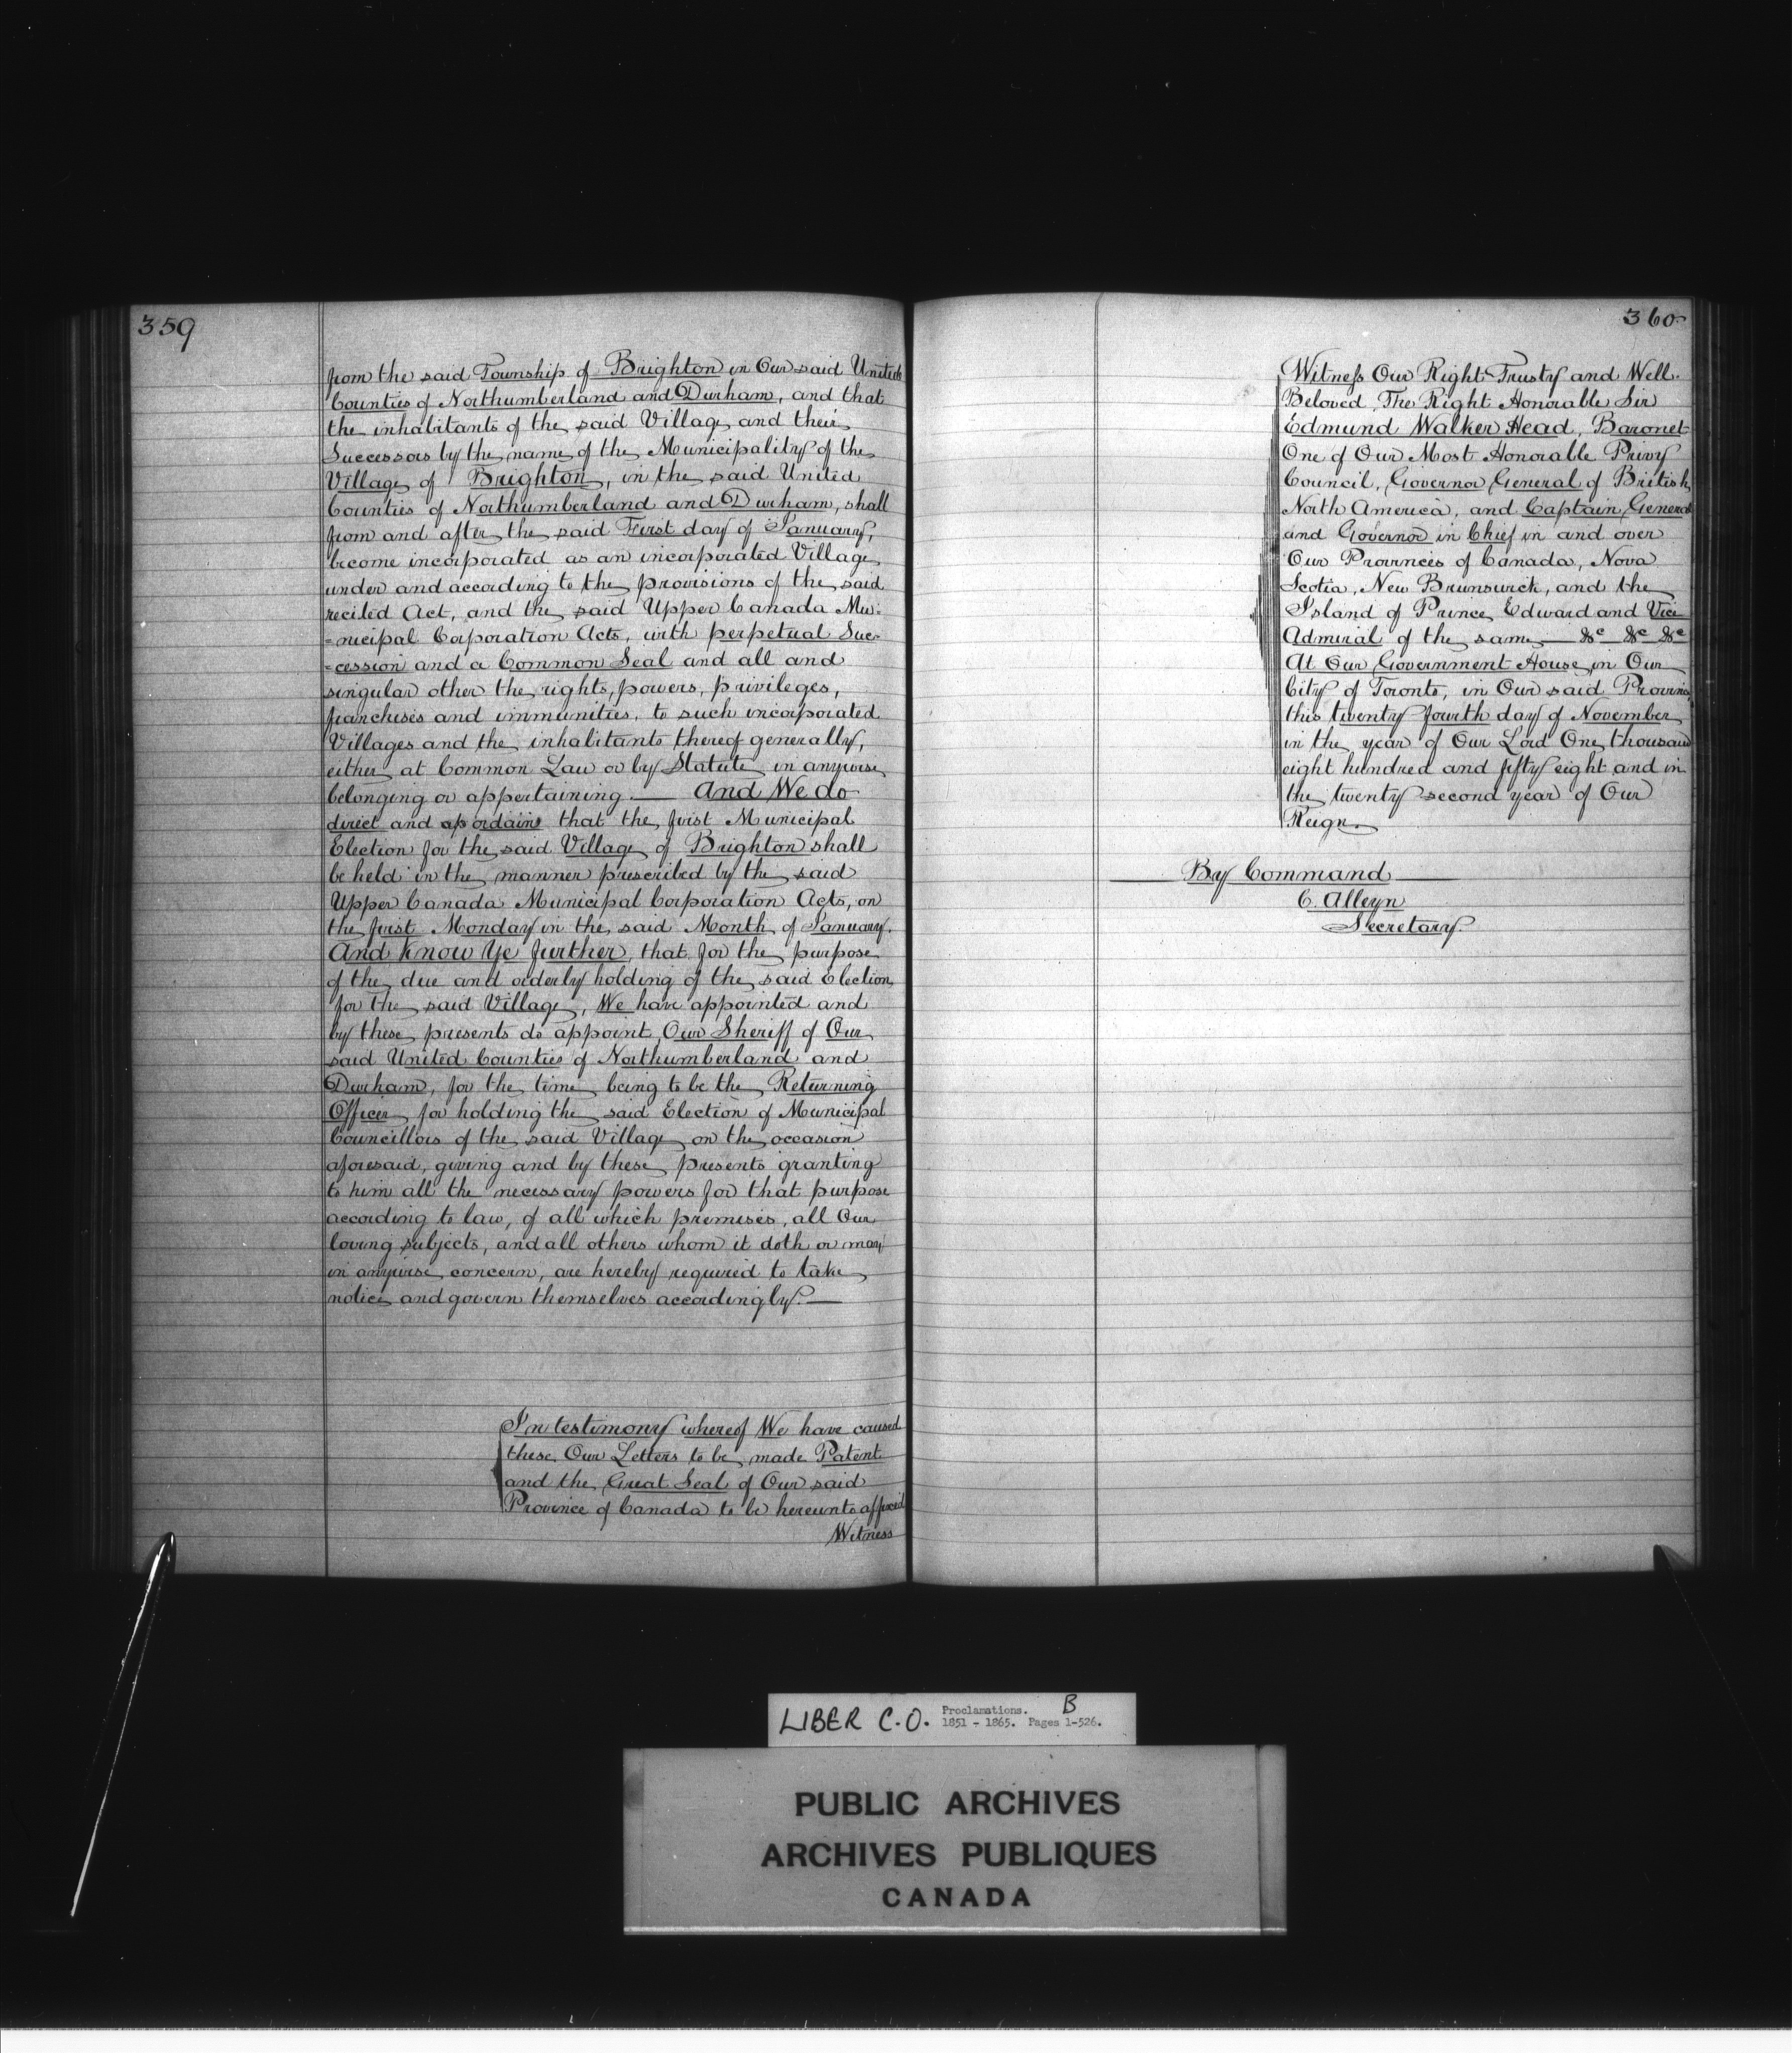 359
from the said Township of Brighton in Our said United
Counties of Northumberland and Durham, and that
the inhabitants of the said Village and their
Successors by the name of the Municipality of the
Village of Brighton, in the said United
Counties of Northumberland and Durham, shall
from and after the said First day of January,
become incorporated as an incorporated Village
under and according to the provisions of the said
recited Act, and the said Upper Canada Mu-
=nicipal Corporation Acts, with perpetual Suc-
=cession and a Common Seal and all and
singular other the rights, powers, privileges,
franchises and immunities, to such incorporated
Villages and the inhabitants thereof generally,
either at Common Law or by Statute in anywise
belonging or appertaining.— And We do
direct and ordain that the first Municipal
Election for the said Village of Brighton shall
be held in the manner prescribed by the said
Upper Canada Municipal Corporation Acts, on
the first Monday in the said Month of January.
And Know Ye further, that for the purpose
of the due and orderly holding of the said Election
for the said Village, We have appointed and
by these presents do appoint Our Sheriff of Our
said United Counties of Northumberland and
Durham, for the time being to be the Returning
Officer for holding the said Election of Municipal
Councillors of the said Village on the occasion
aforesaid, giving and by these presents granting
to him all the necessary powers for that purpose
according to law, of all which premises, all Our
loving subjects, and all others whom it doth or may
in anywise concern, are hereby required to take
notice and govern themselves accordingly.—
In testimony whereof We have caused
these Our Letters to be made Patent
and the Great Seal of Our said
Province of Canada to be hereunto affixed
Witness
360
Witness Our Right Trusty and Well-
Beloved The Right Honorable Sir
Edmund Walker Head, Baronet
One of Our Most Honorable Privy
Council, Governor General of British
North America, and Captain General
and Governor in Chief in and over
Our Provinces of Canada, Nova
Scotia, New Brunswick, and the
Island of Prince Edward and Vice
Admiral of the same — &c &c &c
At Our Government House in Our
City of Toronto, in Our said Province
this twenty fourth day of November
in the year of Our Lord One thousand
eight hundred and fifty eight and in
the twenty second year of Our
Reign.
By Command
C. Alleyn
Secretary.
LIBER C.O. Proclamations. B
1851 - 1865. Pages 1-526.
PUBLIC ARCHIVES
ARCHIVES PUBLIQUES
CANADA